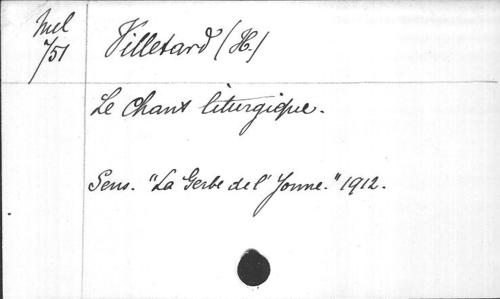 Mel
7/51
Villetard (H.)
Le Chant liturgique.
Sens. "La Gerbe de l'Yonne." 1912.